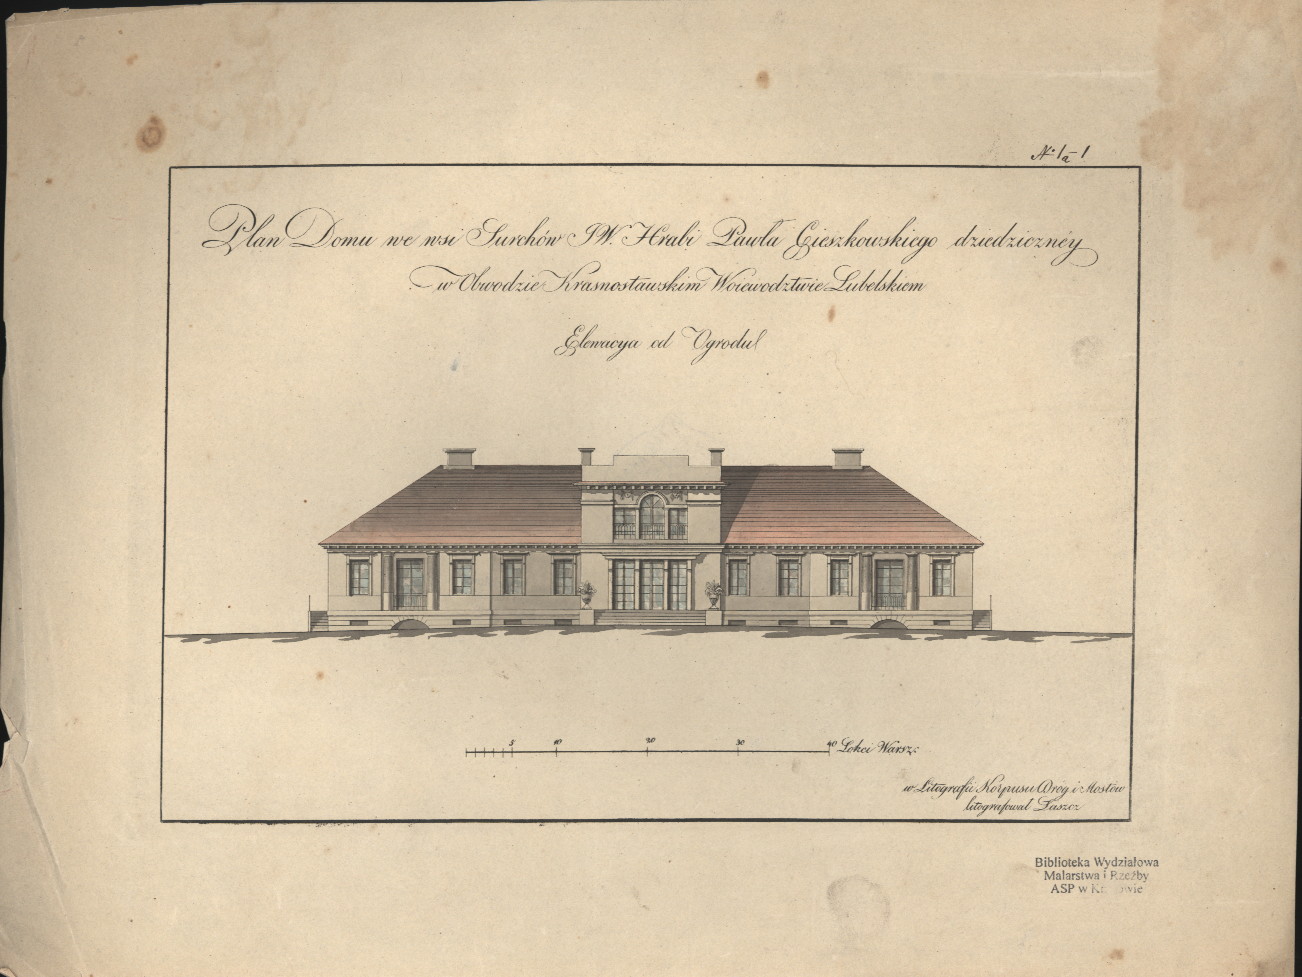 No 1a-1
Plan Domu we wsi Surchów JW. Hrabi Pawła Cieszkowskiego dziedziczney
w Obwodzie Krasnostawskim Woiewodztwie Lubelskiem
Elewacya od Ogrodu
5 10 20 30 40 Łokci Warsz:
w Litografii Korpusu Dróg i Mostów
litografował
Biblioteka Wydziałowa
Malarstwa i Rzeźby
ASP w